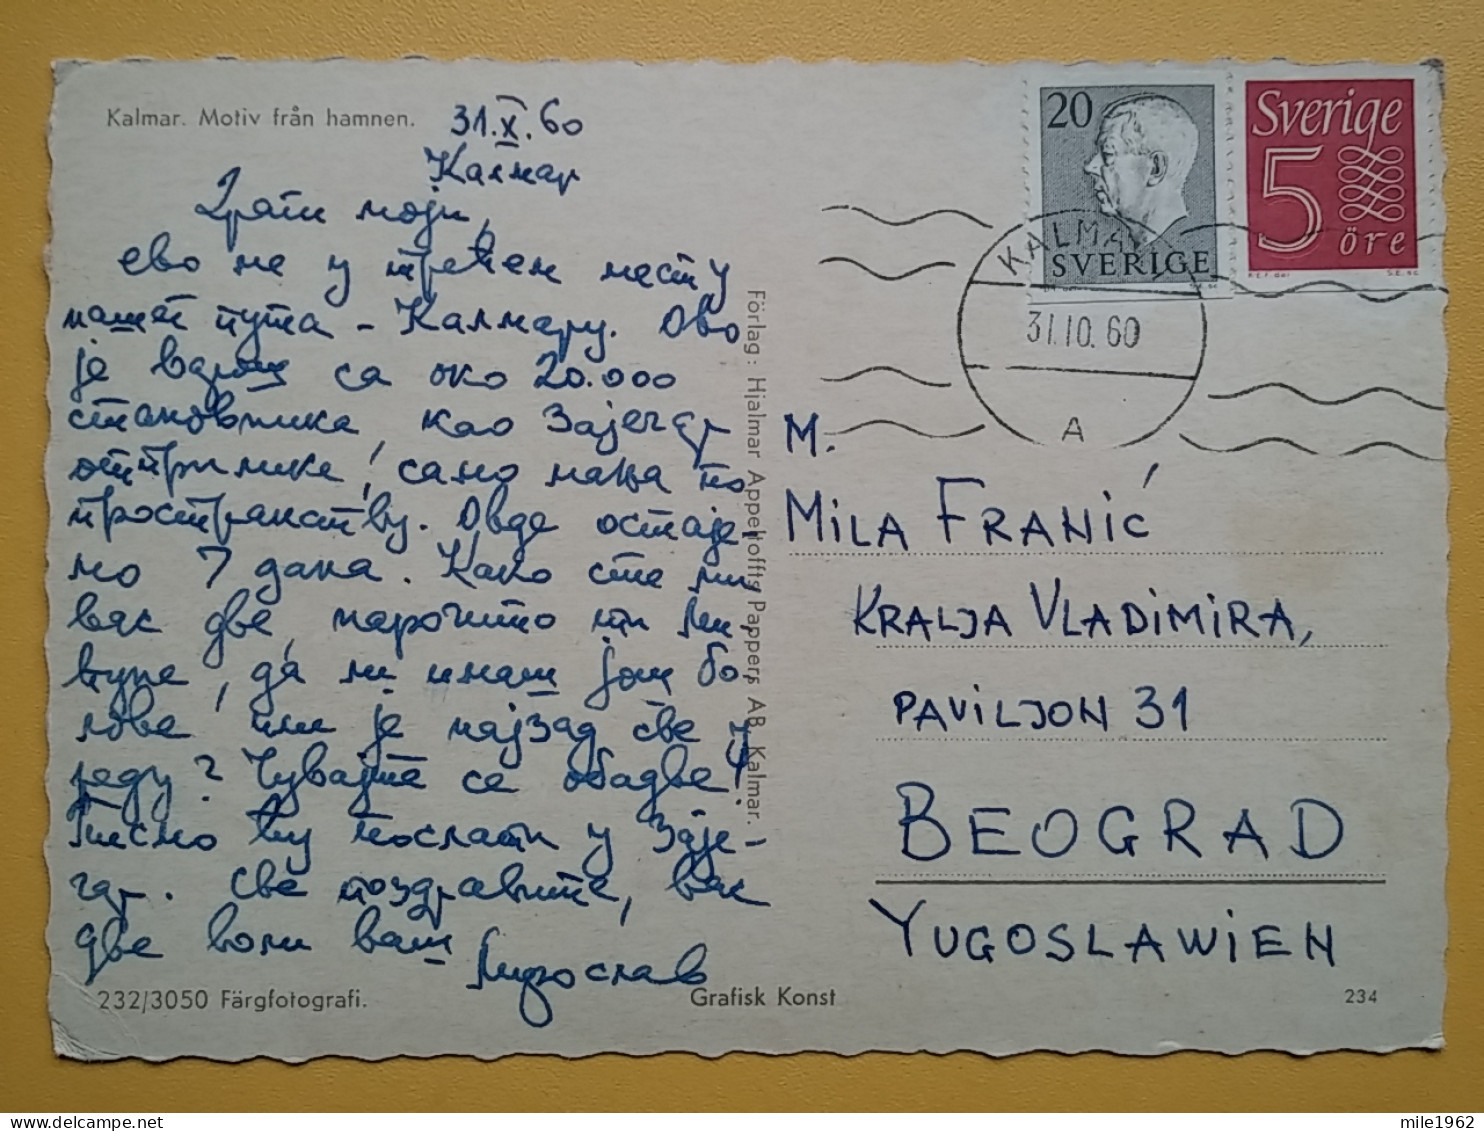 Kalmar. Motiv från hamnen.
31.X.60
Калмар
Драги моји,
ево ме у трећем месту
нашег пута - Калмару. Ово
је варош са око 20.000
становника, као Зајечар
отприлике, само мања по
пространству. Овде остаје-
мо 7 дана. Како сте ми
вас две, нарочито ти
да ли имаш још бо-
лове или је најзад све у
реду? Чувајте се обадве!
Писмо ћу послати у Заје-
чар. Све поздравите, вас
две воли ваш
Мирослав
232/3050 Färgfotografi.
Förlag: Hjalmar Appeltoffts Pappers AB, Kalmar.
Grafisk Konst
234
20
SVERIGE
Sverige
5
öre
KALMAR
31.10.60
A
M.
MILA FRANIĆ
KRALJA VLADIMIRA,
PAVILJON 31
BEOGRAD
YUGOSLAWIEN
mile1962